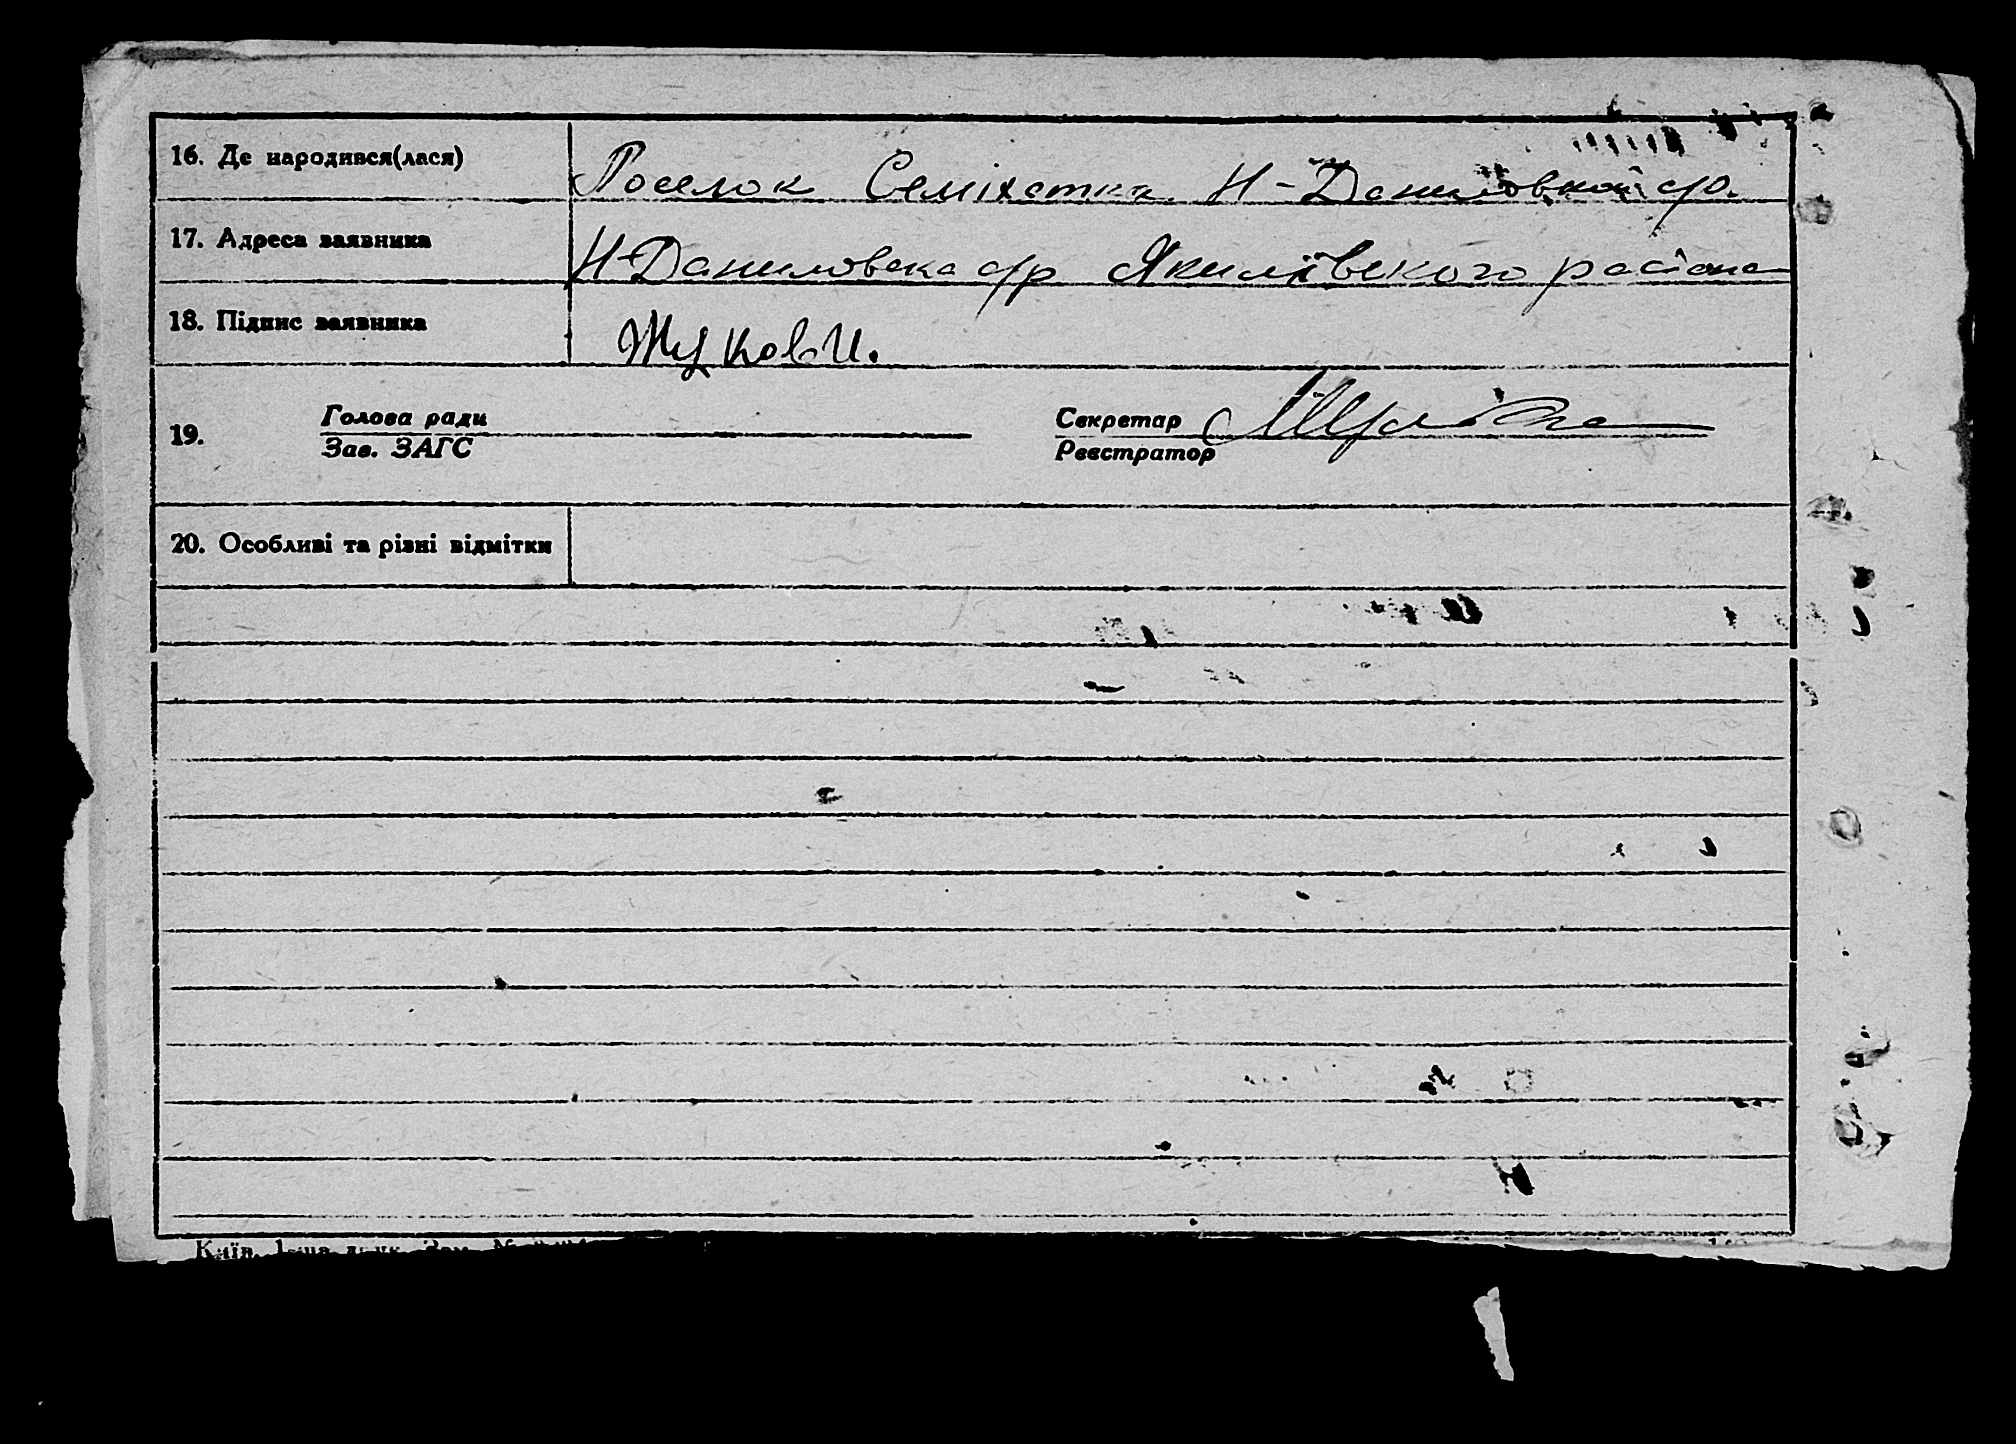 16. Де народився(лася) Поселок Семіхатка Н-Даниловкой с/р.
17. Адреса заявника Н-Даниловска с/р Якимівского района
18. Підпис заявника Жуков И.
19. Голова ради Секретар
Зав. ЗАГС Реєстратор
20. Особливі та різні відмітки
Київ.